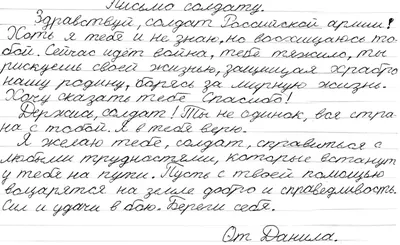 Письмо солдату.
Здравствуй, солдат Российской армии!
Хоть я тебя и не знаю, но восхищаюсь то-
бой. Сейчас идёт война, тебе тяжело, ты
рискуешь своей жизнью, защищая храбро
нашу родину, борясь за мирную жизнь.
Хочу сказать тебе Спасибо!
Держись, солдат! Ты не одинок, вся стра-
на с тобой. Я в тебя верю.
Я желаю тебе, солдат, справиться с
любыми трудностями, которые встанут
у тебя на пути. Пусть с твоей помощью
воцарятся на земле добро и справедливость.
Сил и удачи в бою. Береги себя.
От Данила.